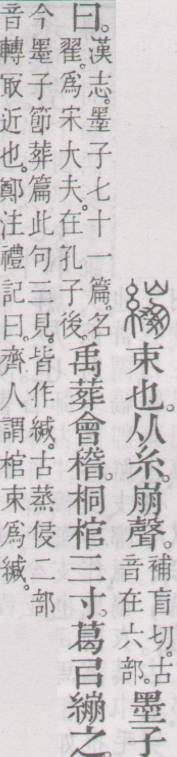 繃束也。从糸。崩聲。補盲切。古音在六部。墨子
曰。漢志。墨子七十一篇。名翟。爲宋大夫。在孔子後。禹葬會稽。桐棺三寸。葛㠯繃之。
今墨子節葬篇此句三見。皆作緘。古蒸侵二部
音轉冣近也。鄭注禮記曰。齊人謂棺束爲緘。